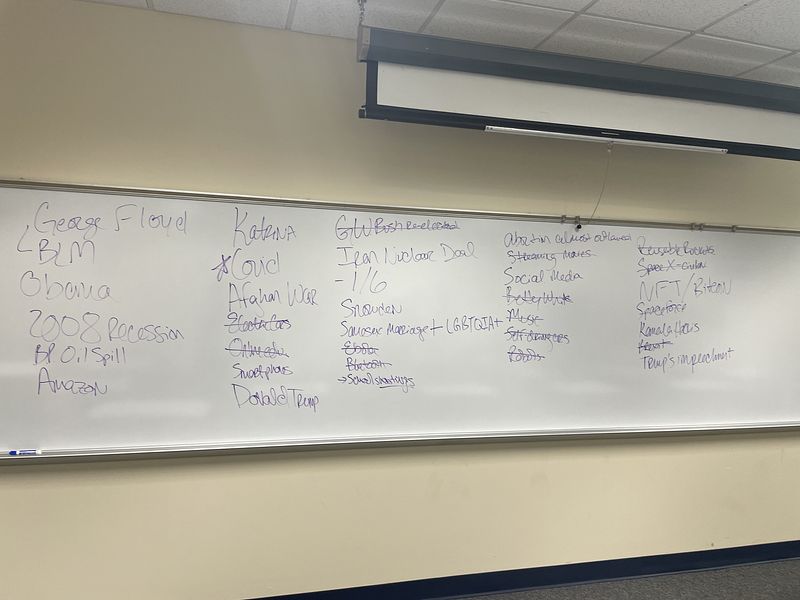 George Floyd
BLM
Obama
2008 Recession
BP Oil Spill
Amazon
Katrina
Covid
Afghan War
Electric Cars
Smartphones
Donald Trump
GW Bush Reelected
Iran Nuclear Deal
-1/6
Snowden
Samesex Marriage + LGBTQIA+
Ebola
School shootings
abortion almost outlawed
Streaming Movies
Social Media
Betty White
Music
Self driving cars
Robots
Reusable Rockets
Space X-Civilian
NFT/Bitcoin
Spaceforce
Kamala Harris
Trump's impeachment